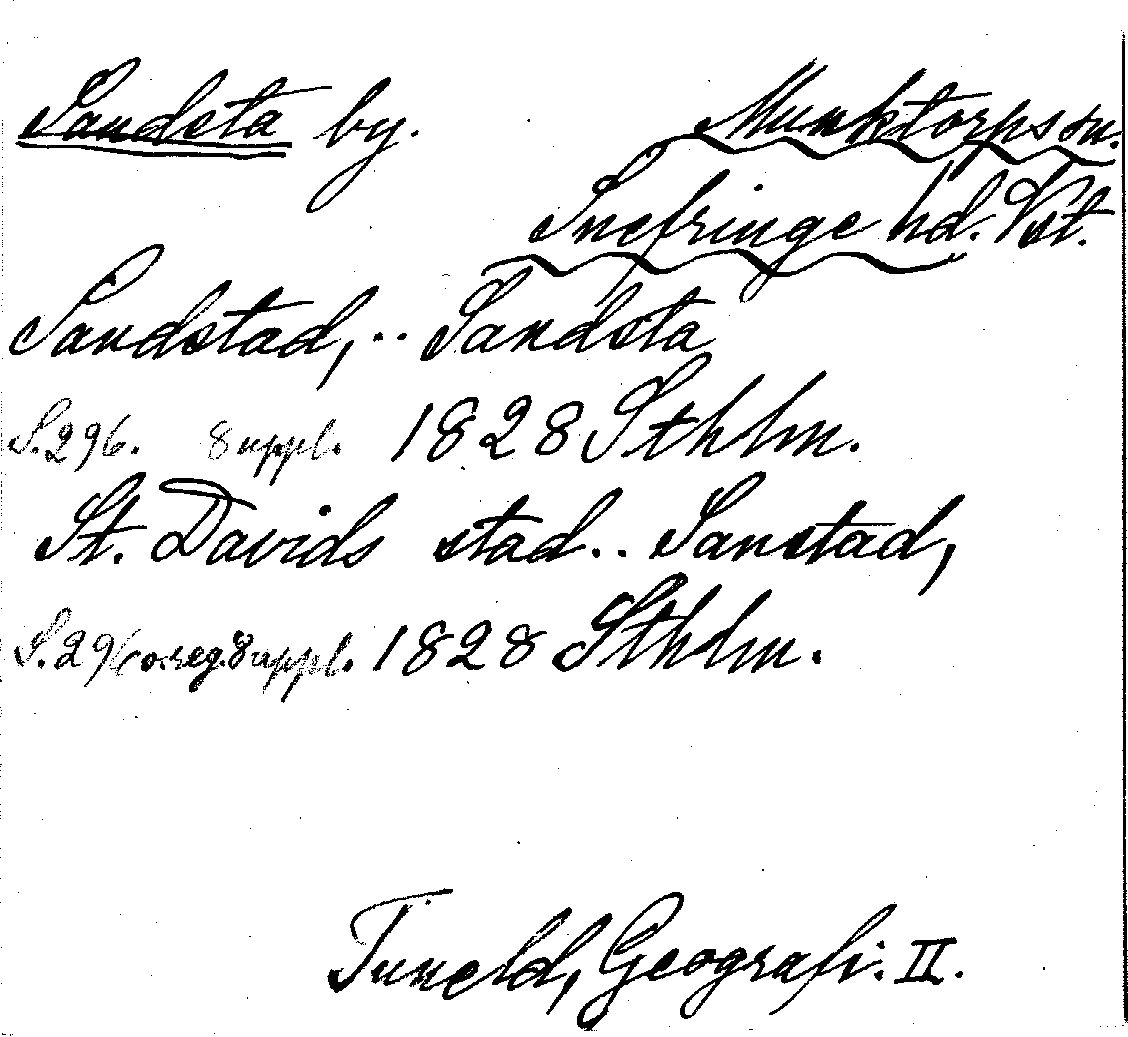 Sandsta by. Munktorps sn.
Snefringe hd. Vst.
Sandstad, .. Sandsta
S. 296. 8 uppl. 1828 Sthlm.
St. Davids stad .. Sanstad,
S. 296 o. reg. 8 uppl. 1828 Sthlm.
Tuneld, Geografi. II.